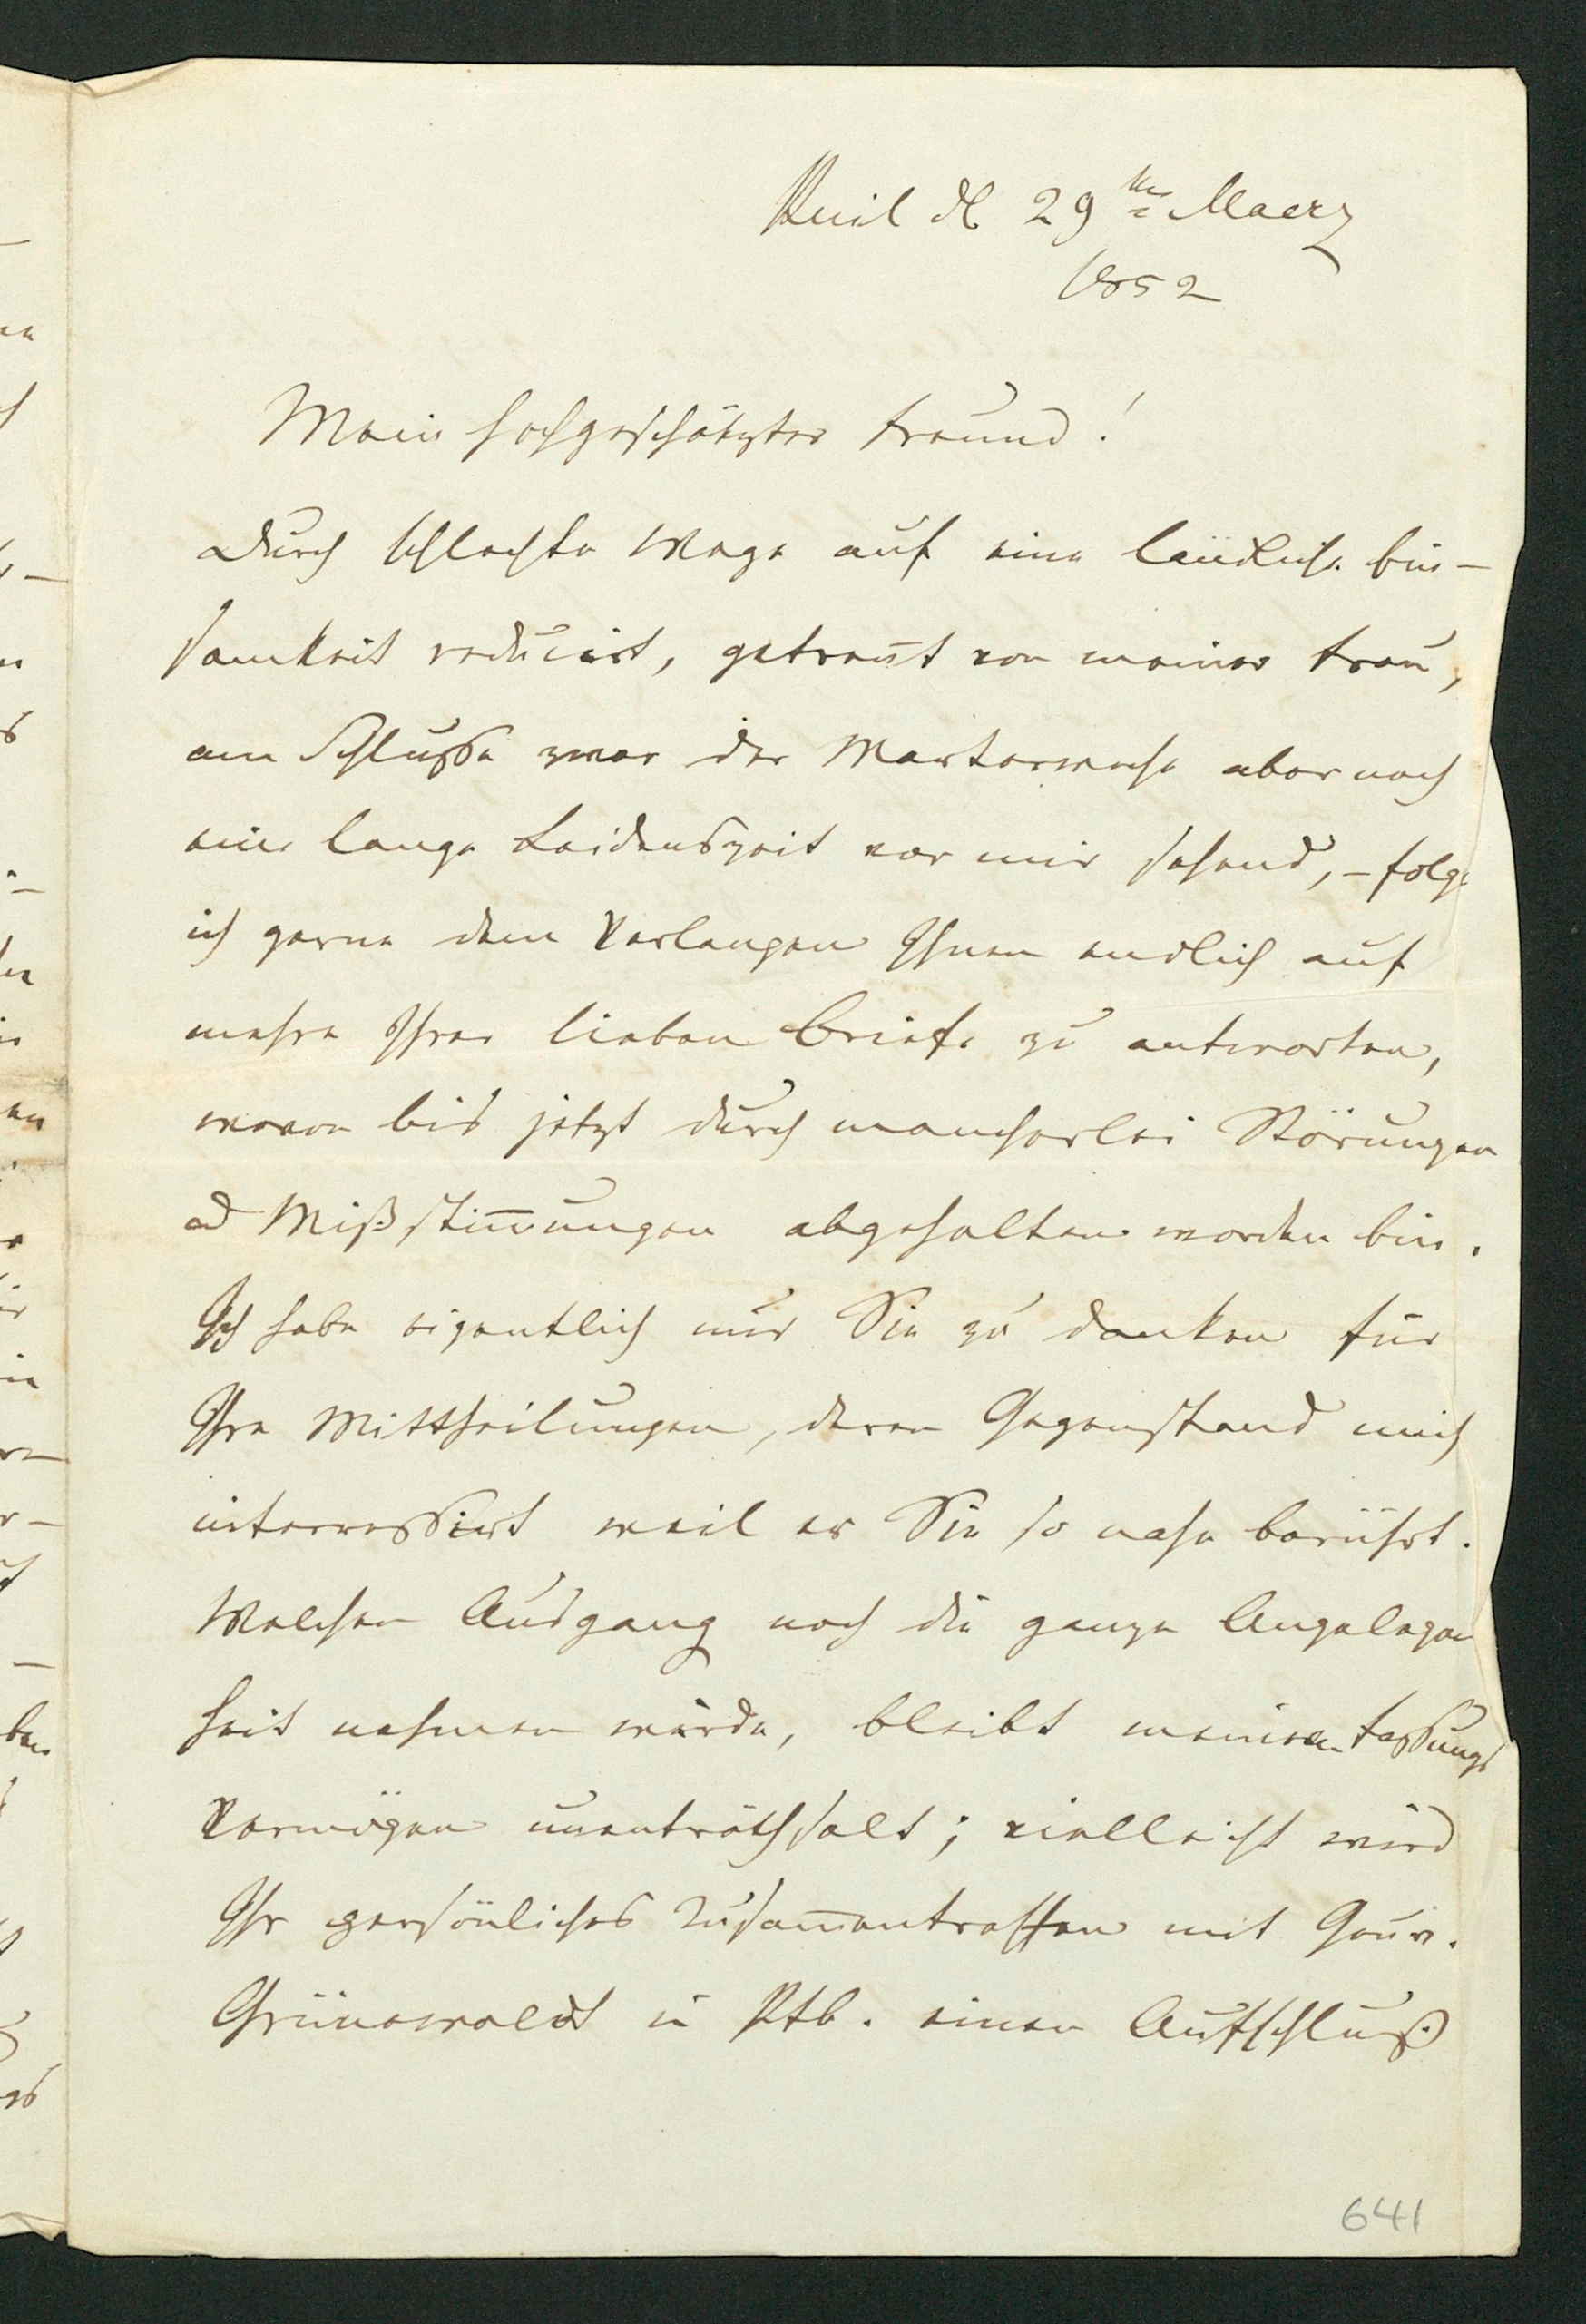 Ruil d 29ten Maerz
1852
Mein hochgeschätzter Freund!
Durch schlechte Wege auf eine ländliche Ein-
samkeit reducirt, getrennt von meiner Frau,
am Schluße zwar der Marterwoche aber noch
eine lange Leidenszeit vor mir sehend, – folge
ich gerne dem Verlangen Ihnen endlich auf
mehre Ihrer lieben Briefe zu antworten,
wovon bis jetzt durch mancherlei Störungen
und Mißstim̅ungen abgehalten worden bin.
Ich habe eigentlich nur Sie zu danken für
Ihre Mittheilungen, deren Gegenstand mich
interressirt weil er Sie so nahe berührt.
Welchen Ausgang noch die ganze Angelegen
heit nehmen würde, bleibt meinem Fassungs
Vermögen unenträthselt; vielleicht wird
Ihr persönliches Zusam̅entreffen mit Gouv.
Grünewaldt in Ptb. einen Aufschluß
641